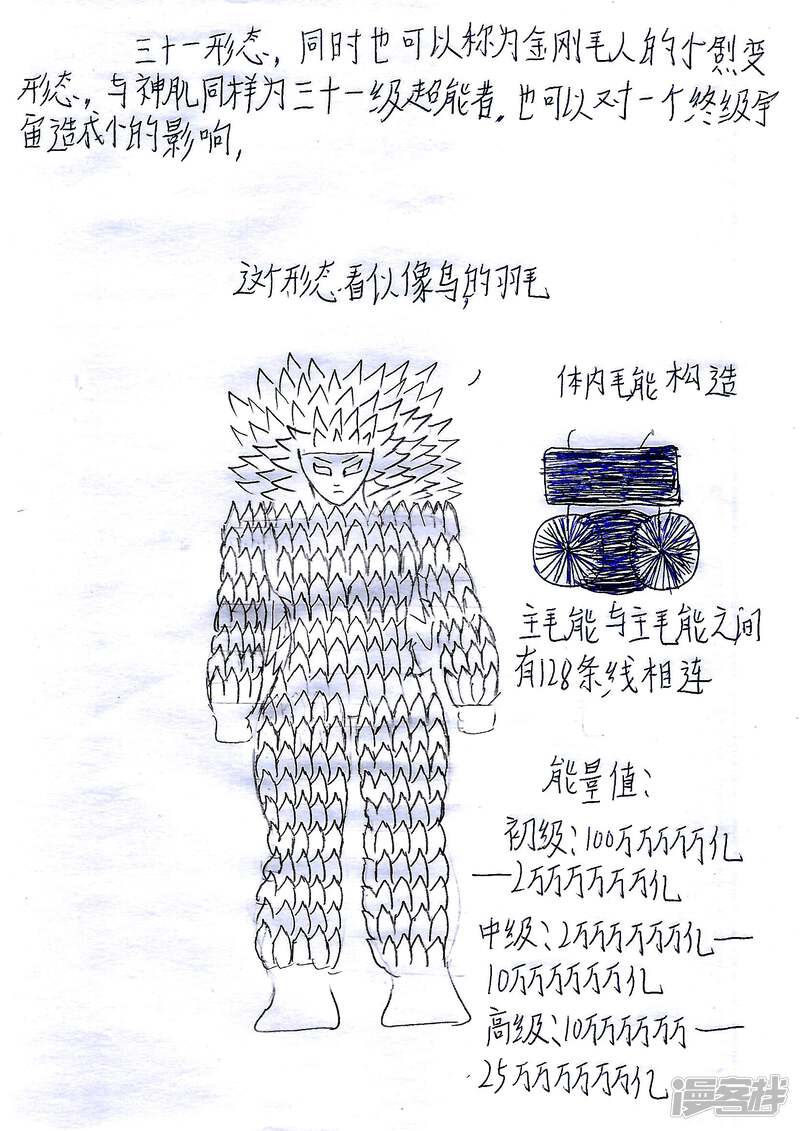 三十一形态，同时也可以称为金刚毛人的小剧变
形态，与神肌同样为三十一级超能者，也可以对一个终级宇
宙造成小的影响，
这个形态看似像鸟的羽毛
体内毛能构造
主毛能与主毛能之间
有128条线相连
能量值：
初级：100万万万万万亿
—2万万万万万万亿
中级：2万万万万万万亿—
10万万万万万万亿
高级：10万万万万万万—
25万万万万万万亿
漫客栈